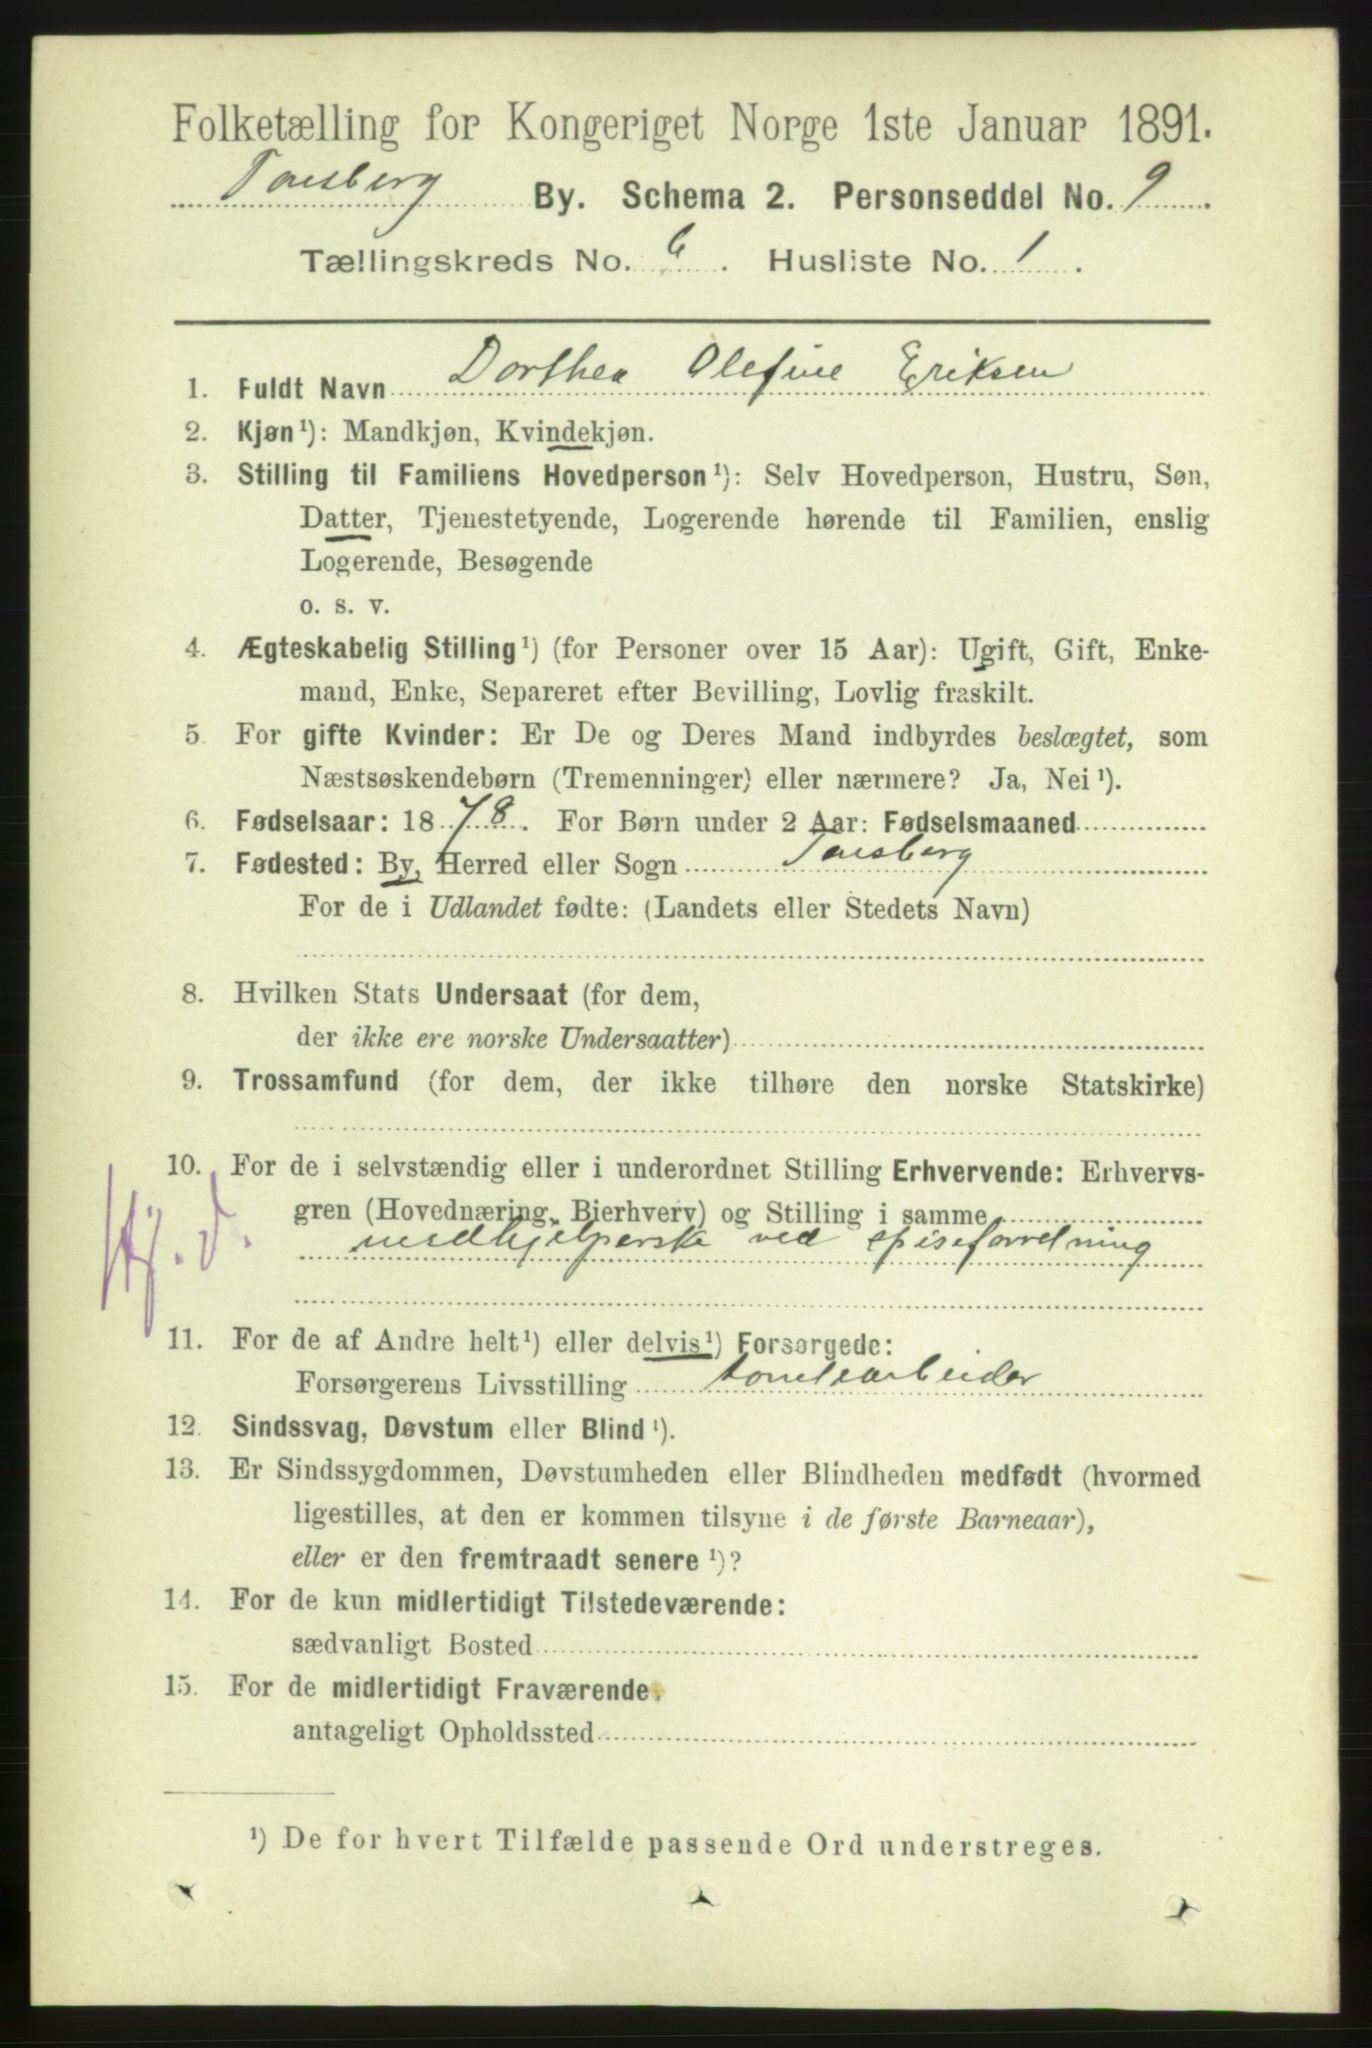 Folketælling for Kongeriget Norge 1ste Januar 1891.
Tønsberg By. Schema 2. Personseddel No. 9.
Tællingskreds No. 6. Husliste No. 1.
1. Fuldt Navn Dorthea Olefine Eriksen
2. Kjøn ¹): Mandkjøn, Kvindekjøn.
3. Stilling til Familiens Hovedperson ¹): Selv Hovedperson, Hustru, Søn,
Datter, Tjenestetyende, Logerende hørende til Familien, enslig
Logerende, Besøgende
o. s. v.
4. Ægteskabelig Stilling ¹) (for Personer over 15 Aar): Ugift, Gift, Enke-
mand, Enke, Separeret efter Bevilling, Lovlig fraskilt.
5. For gifte Kvinder: Er De og Deres Mand indbyrdes beslægtet, som
Næstsøskendebørn (Tremenninger) eller nærmere? Ja, Nei ¹).
6. Fødselsaar: 1878. For Børn under 2 Aar: Fødselsmaaned
7. Fødested: By, Herred eller Sogn Tønsberg
For de i Udlandet fødte: (Landets eller Stedets Navn)
8. Hvilken Stats Undersaat (for dem,
der ikke ere norske Undersaatter)
9. Trossamfund (for dem, der ikke tilhøre den norske Statskirke)
10. For de i selvstændig eller i underordnet Stilling Erhvervende: Erhvervs-
gren (Hovednæring, Bierhverv) og Stilling i samme
Hj. d. medhjelperske ved spiseforretning
11. For de af Andre helt ¹) eller delvis ¹) Forsørgede:
Forsørgerens Livsstilling tomtearbeider
12. Sindssvag, Døvstum eller Blind ¹).
13. Er Sindssygdommen, Døvstumheden eller Blindheden medfødt (hvormed
ligestilles, at den er kommen tilsyne i de første Barneaar),
eller er den fremtraadt senere ¹)?
14. For de kun midlertidigt Tilstedeværende:
sædvanligt Bosted
15. For de midlertidigt Fraværende.
antageligt Opholdssted
¹) De for hvert Tilfælde passende Ord understreges.